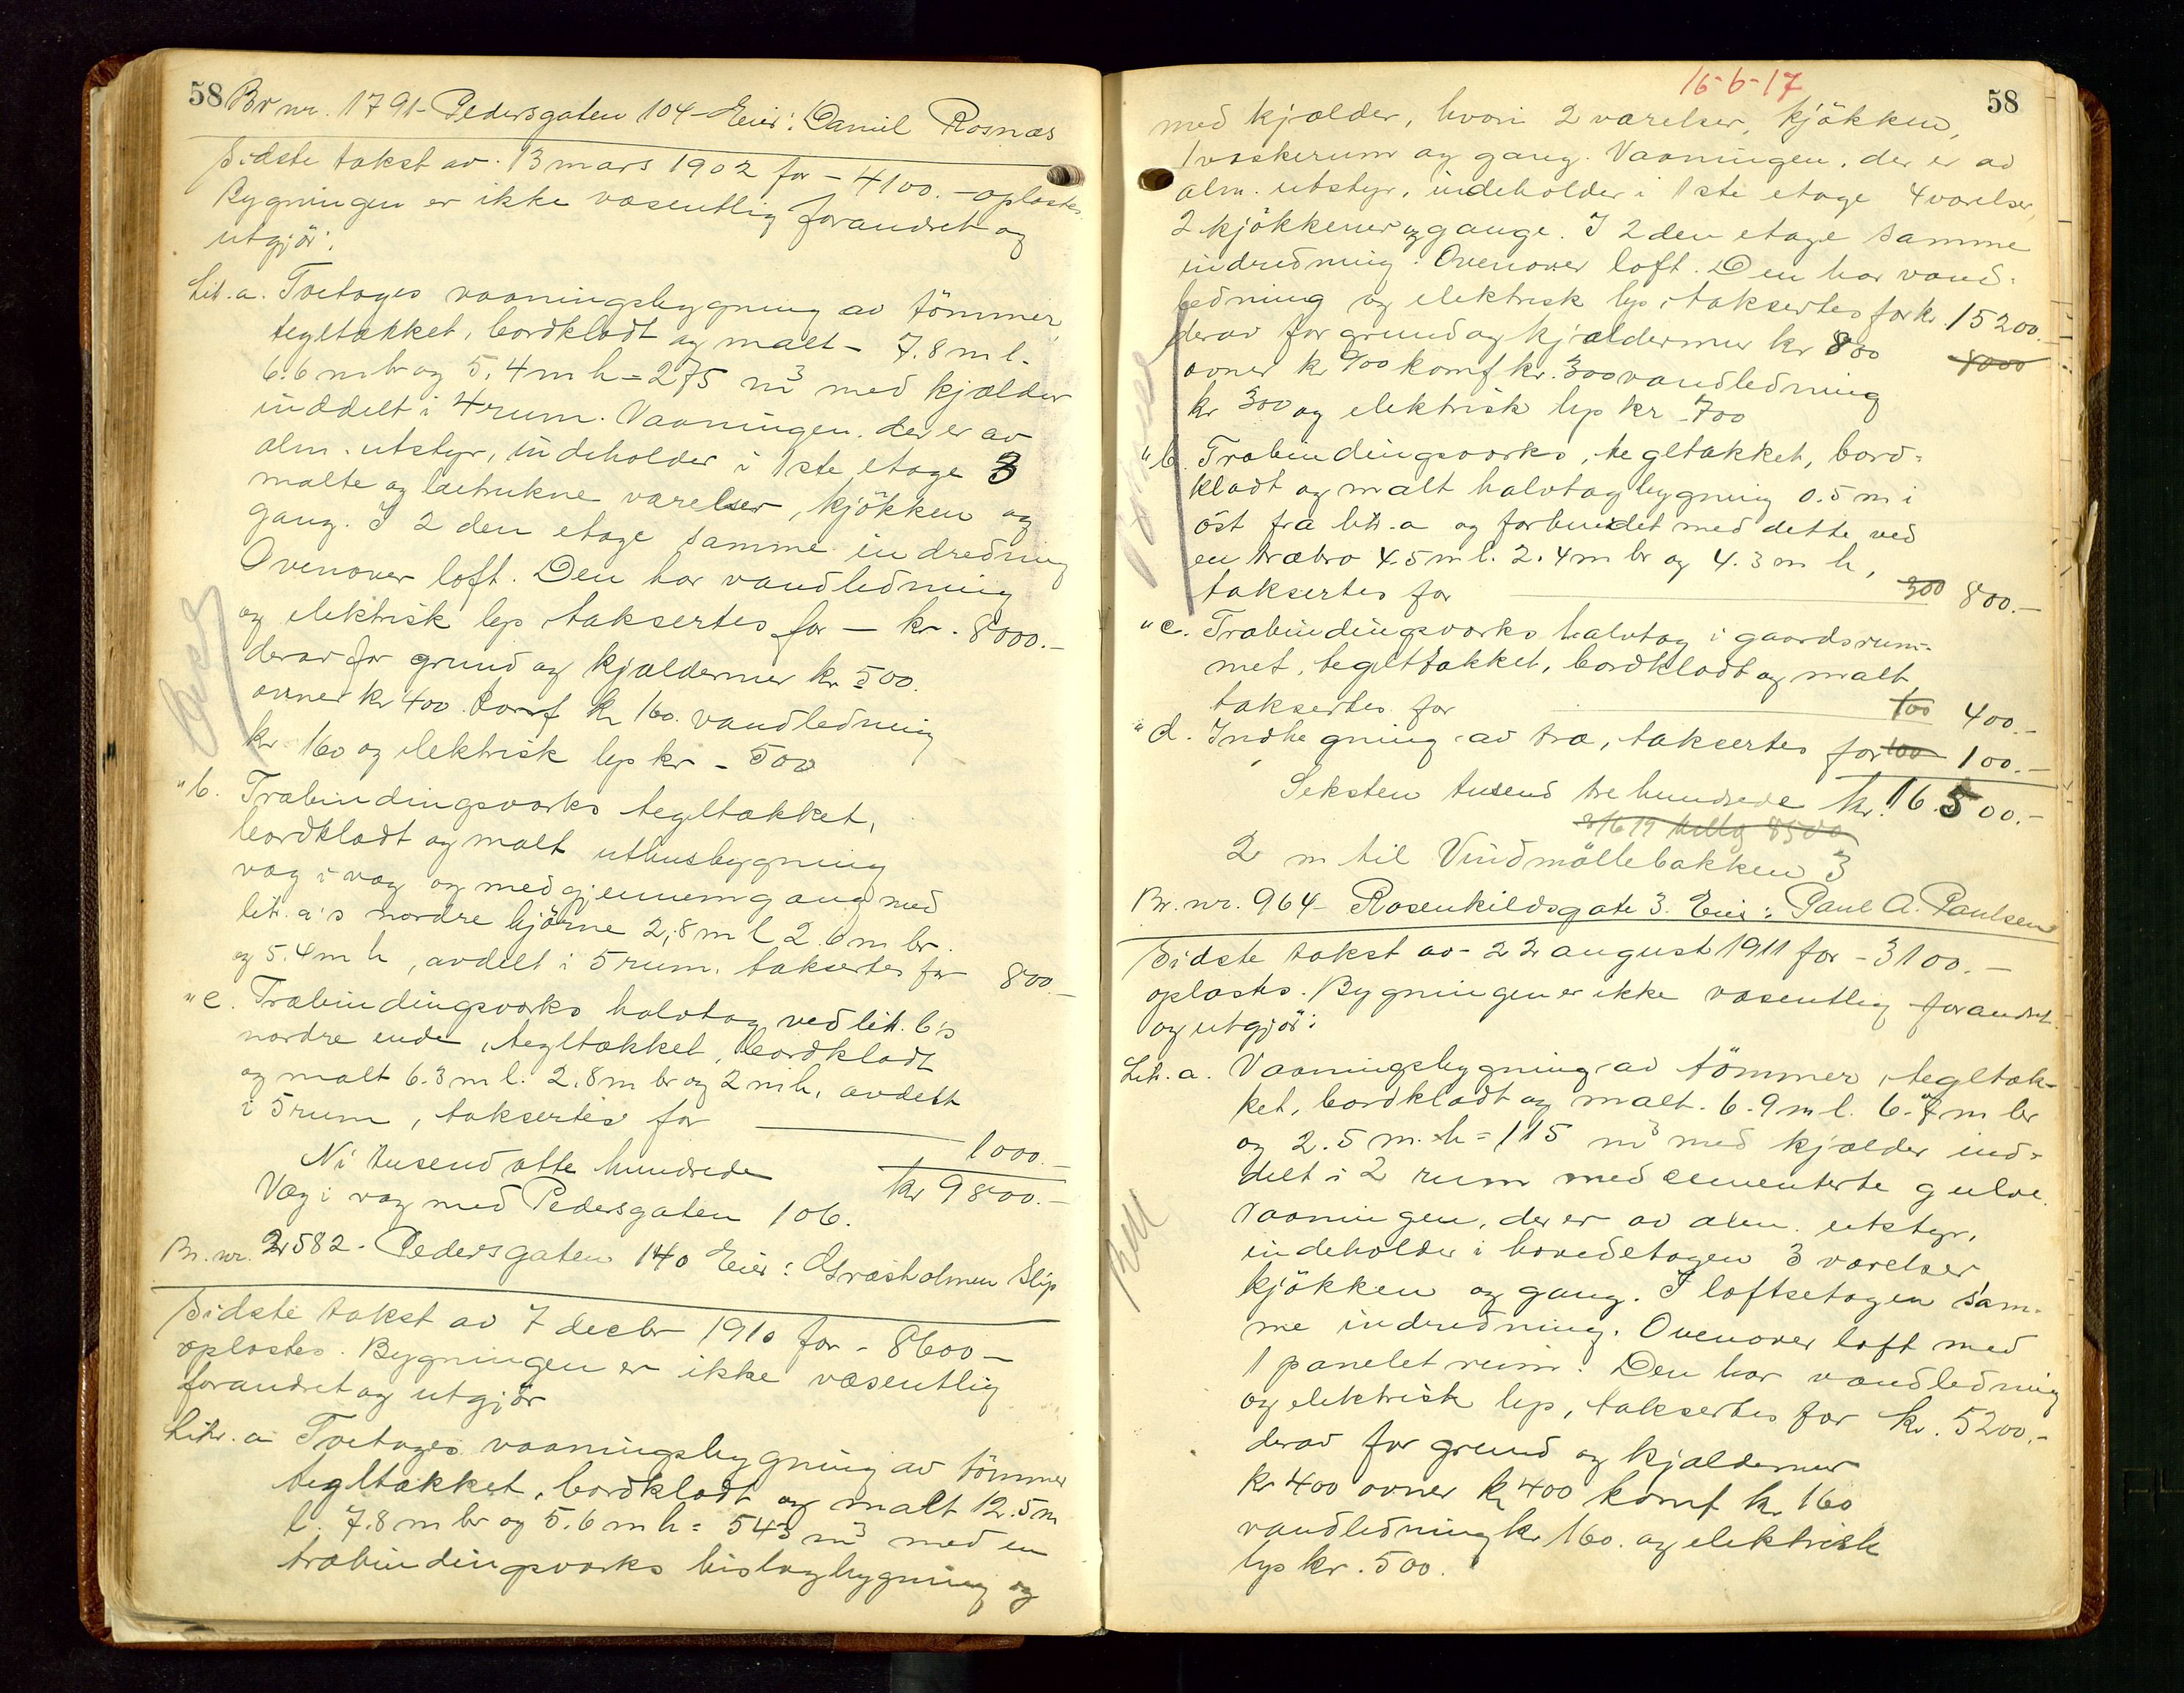 58 Br nr. 1791 - Pedersgaten 104 - Eier: Daniel Rosnæs
Sidste takst av 13 mars 1902 for - 4100.- oplæstes.
Bygningen er ikke væsentlig forandret og
utgjör:
Lit. a. Toetages vaaningsbygning av tömmer,
tegltækket, bordklædt og malt - 7.8 m l.
6.6 m br og 5.4 m h = 275 m³ med kjælder
inddelt i 4 rum. Vaaningen, der er av
alm. utstyr, indeholder i 1ste etage 3
malte og betrukne værelser, kjökken og
gang. I 2den etage samme indredning
Ovenover loft. Den har vandledning
og elektrisk lys, taksertes for - kr. 8000.-
derav for grund og kjældermur kr 500.
ovner kr 400 komf kr 160. vandledning
kr 160 og elektrisk lys kr - 500
" b. Træbindingsverks tegltækket,
bordklædt og malt uthusbygning
væg i væg og med gjennemgang med
litr. a's nordre hjörne 2,8 m l 2.6 m br.
og 5.4 m h, avdelt i 5 rum, taksertes for 800.-
" c. Træbindingsverks halvtag ved litr. b's
nordre ende, tegltækket, bordklædt
og malt 6.3 m l. 2.8 m br og 2 m h, avdelt
i 5 rum, taksertes for 1000.-
Ni tusend otte hundrede kr 9800.-
Væg i væg med Pedersgaten 106.
Br. nr. 2582 - Pedersgaten 140 Eier: Græsholmen Slip
Sidste takst av 7 decbr 1910 for - 8600 -
oplæstes. Bygningen er ikke væsentlig
forandret og utgjör
Litr. a Toetages vaaningsbygning av tömmer
tegltækket, bordklædt og malt 12.5 m
l. 7.8 m br og 5.6 m h = 543 m³ med en
træbindingsverks bislagbygning og
16-6-17
58
med kjælder, hvori 2 værelser, kjökken,
1 vaskerum og gang. Vaaningen, der er av
alm. utstyr, indeholder i 1ste etage 4 værelser,
2 kjökkener og gange. I 2den etage samme
indredning. Ovenover loft. Den har vand-
ledning og elektrisk lys, taksertes for kr. 15200.
derav for grund og kjældermur kr 800 8000
ovner kr 900 komf kr. 300 vandledning
kr 300 og elektrisk lys kr - 700
" b. Træbindingsverks, tegltækket, bord-
klædt og malt halvtagbygning 0.5 m i
öst fra litr. a og forbundet med dette ved
en træbro 4.5 m l. 2.4 m br og 4.3 m h,
taksertes for 300 800.-
" c. Træbindingsverks halvtag i gaardsrum-
met, tegltækket, bordklædt og malt
taksertes for 100 400.-
" d. Indhegning av træ, taksertes for 100 100.-
Seksten tusend tre hundrede kr. 16.500.-
2 m til Vindmöllebakken 3
Br. nr. 964 - Rosenkildsgate 3. Eier: Paul A. Paulsen
Sidste takst av - 22 august 1911 for - 3100.-
oplæstes. Bygningen er ikke væsentlig forandret
og utgjör:
Litr. a. Vaaningsbygning av tömmer, tegltæk-
ket, bordklædt og malt - 6.9 m l. 6.7 m br
og 2.5 m. h = 115 m³ med kjælder ind-
delt i 2 rum med cementerte gulve.
Vaaningen, der er av alm. utstyr,
indeholder i hovedetagen 3 værelser
kjökken og gang. I loftsetagen sam-
me indredning. Ovenover loft med
1 panelet rum. Den har vandledning
og elektrisk lys, taksertes for kr. 5200.-
derav for grund og kjældermur
kr 400 ovner kr 400 komf kr 160
vandledning kr 160. og elektrisk
lys kr. 500.